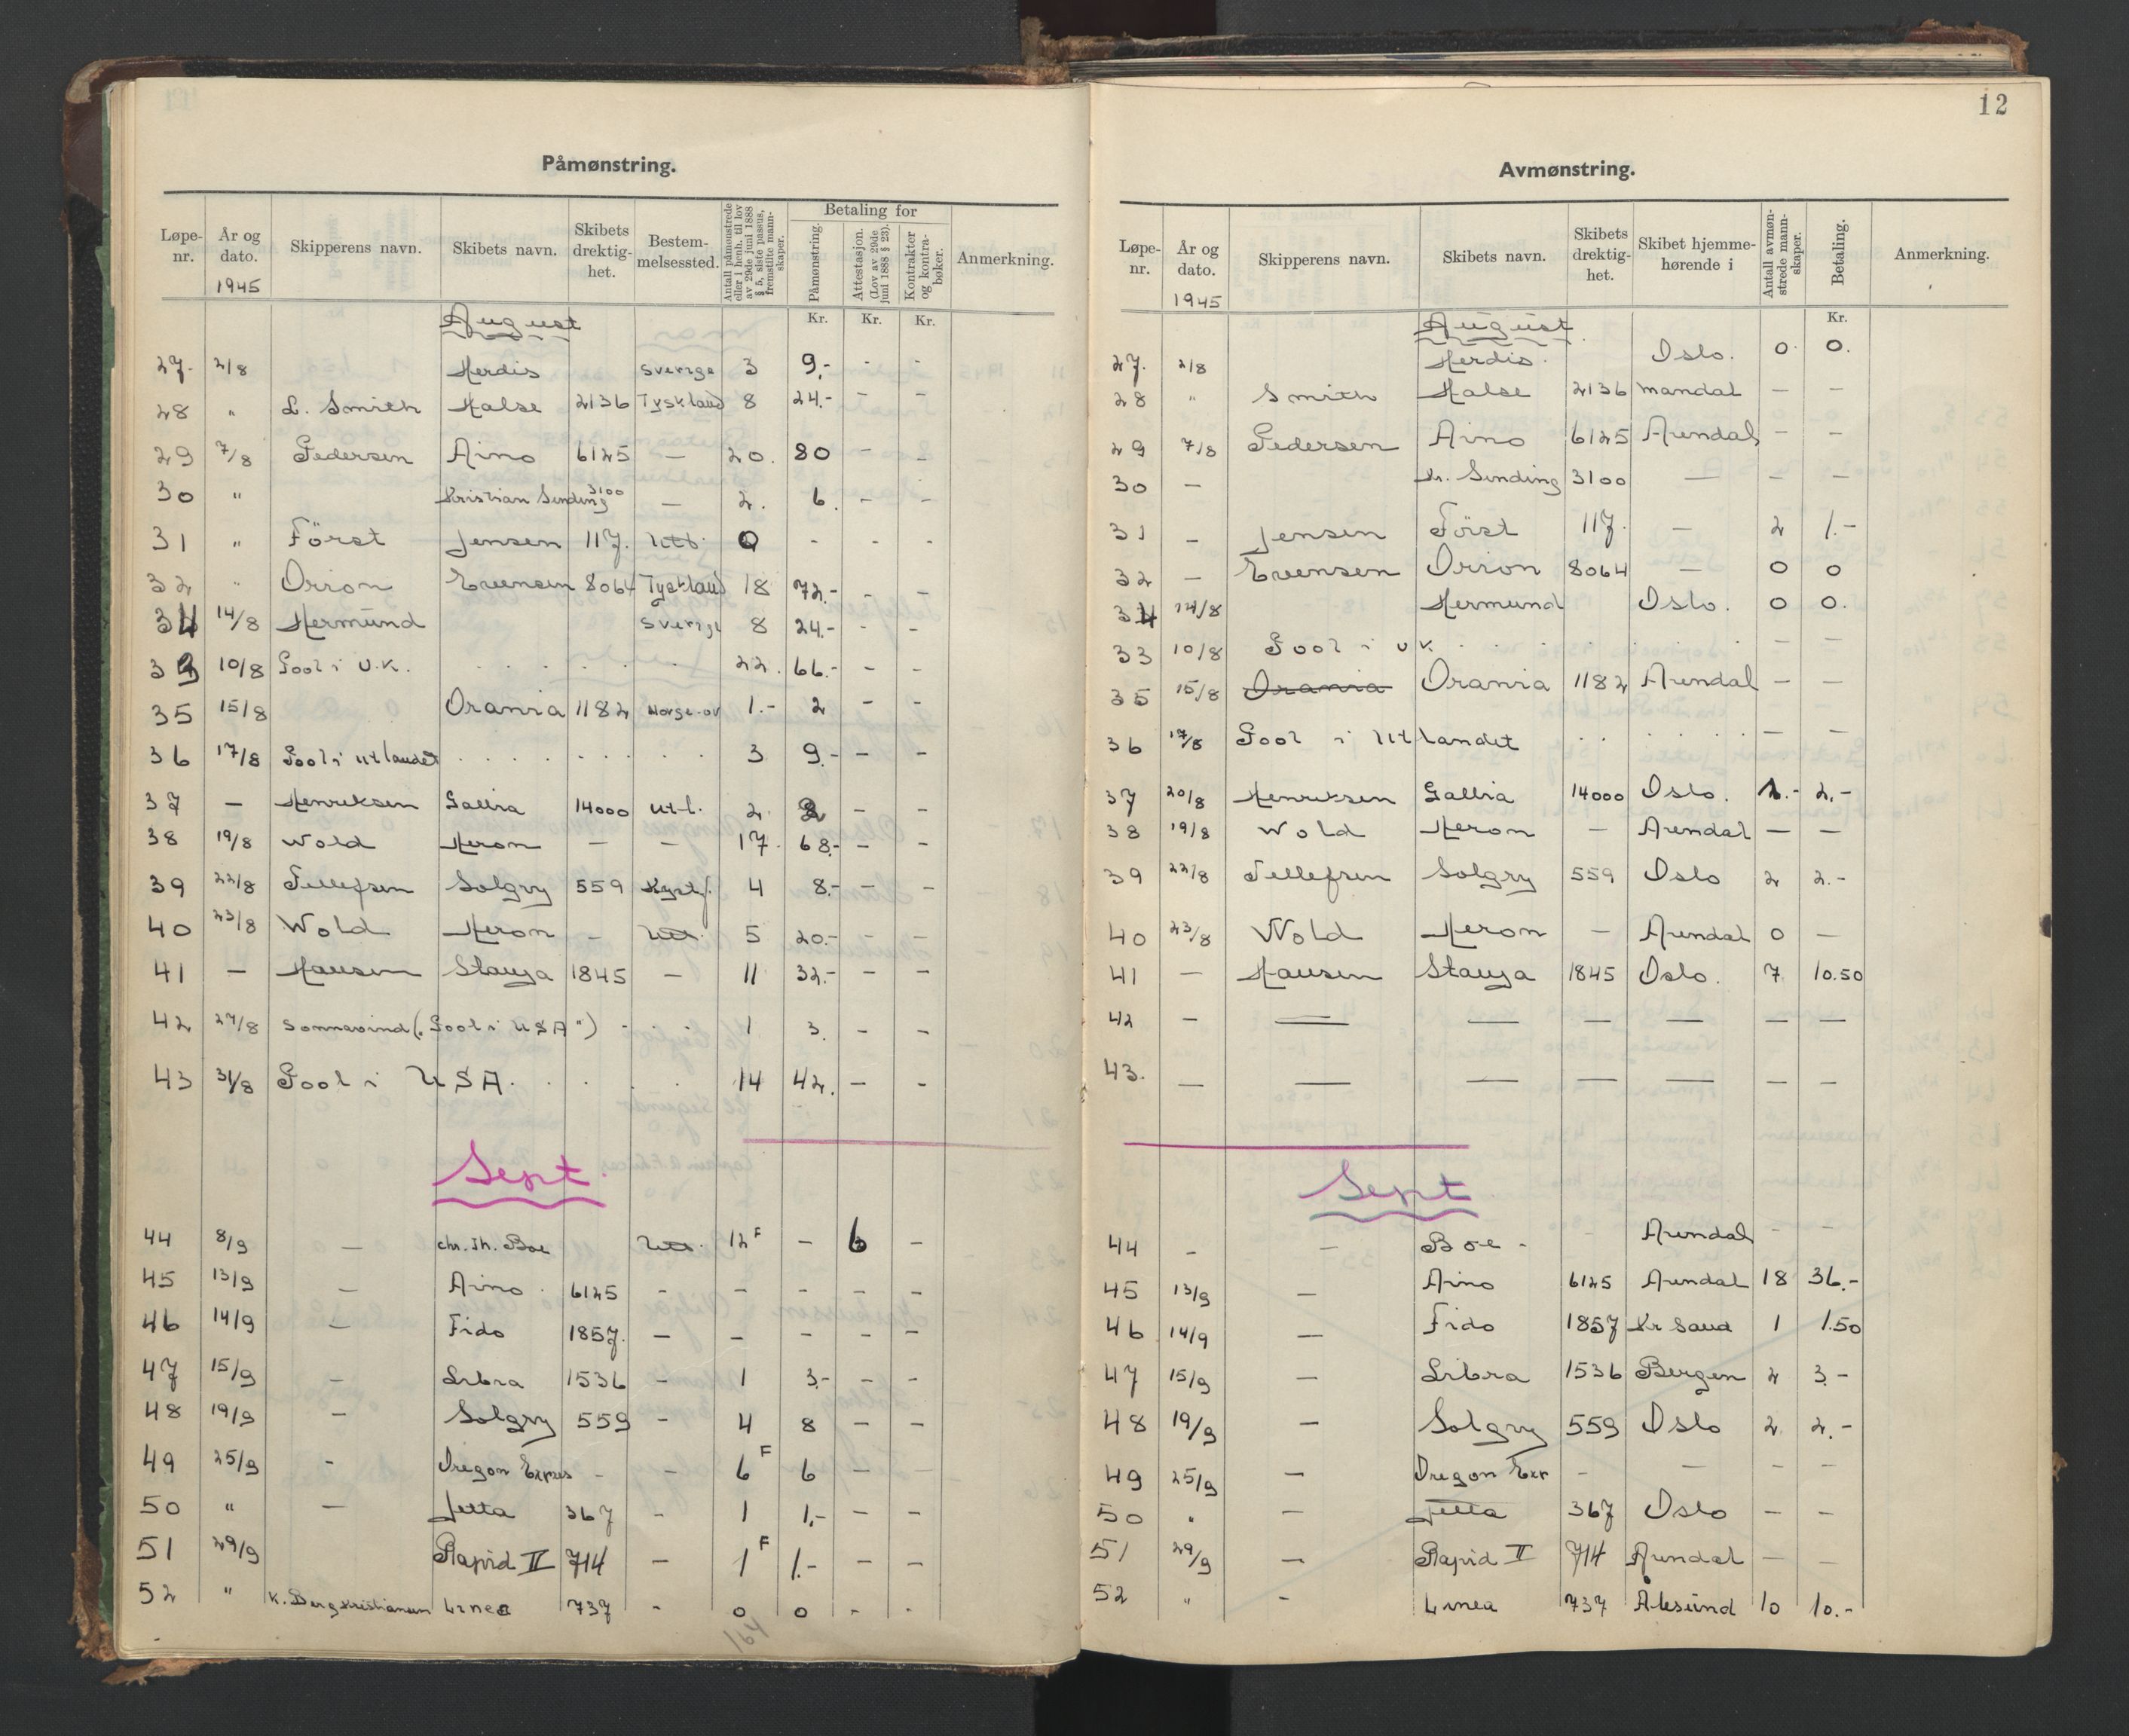 Påmønstring.
Løpe-nr. | År og dato. 1945 | Skipperens navn. | Skibets navn. | Skibets drektig-het. | Bestem-melsessted. | Antall påmønstrede eller i henh. til lov av 29de juni 1888 § 5, siste passus, fremstilte mann-skaper. | Betaling for | Påmønstring. | Attestasjon. (Lov av 29de juni 1888 § 23). | Kontrakter og kontra-bøker. | Anmerkning.
Kr. Kr. Kr.
August
27. 2/8 Herdis Sverige 3 9.- - -
28 " L. Smith Halse 2136 Tyskland 8 24.- - -
29 7/8 Pedersen Aino 6125 — 20. 80 - -
30 " Kristian Sinding 3100 — 2. 6. - -
31 " Först Jensen 117. Utl. 0 - - -
32 " Orion Evensen 8064 Tyskland 18 72.- - -
34 14/8 Hermund Sverige 8 24.- - -
33 10/8 Pool i U.K. . . . . . 22. 66.- - -
35 15/8 Orania 1182 Norge-ov 1.- 2 - -
36 17/8 Pool i utlandet . . . . . . . 3 9.- - -
37 — Henriksen Gallia 14000 Utl. 2 2 - -
38 19/8 Wold Heron — — 17. 68.- - -
39 22/8 Tellefsen Solgry 559 Kystf. 4 8.- - -
40 23/8 Wold Heron — Utl. 5 20.- - -
41 — Hansen Stanja 1845 — 11 32.- - -
42 27/8 Sonnavind (" Pool i USA ") - . - 1 3. - -
43 31/8 Pool i USA. . . . . 14 42. - -
Sept.
44 8/9 — Chr. Th. Boe Utl. 12 F — 6 —
45 13/9 — Aino. 6125 — — — — —
46 14/9 — Fido 1857. — — — — —
47 15/9 — Libra 1536 — 1 3.- - -
48 19/9 — Solgry 559 — 4 8 - -
49 25/9 - Oregon Expres - - 6 F 6 - -
50 " — Jetta 367 - 1 1.- - -
51 29/9 Rapid II 714 — 1 F 1.- - -
52 " K. Berg Kristiansen Linea 737 - 0 0 - -
164
12
Avmønstring.
Løpe-nr. | År og dato. 1945 | Skipperens navn. | Skibets navn. | Skibets drektig-het. | Skibet hjemme-hørende i | Antall avmøn-strede mann-skaper. | Betaling. | Anmerkning.
Kr.
August
27. 2/8 Herdis. Oslo. 0. 0.
28 " Smith Halse 2136 Mandal — —
29 7/8 Pedersen Aino 6125 Arendal — —
30 — Kr. Sinding 3100 — — —
31 — Jensen Först 117. — 2 1.-
32 — Evensen Orion 8064 — 0 0
34 14/8 Hermund Oslo. 0 0.
33 10/8 Pool i UK. . . . . . . — —
35 15/8 Orania Orania 1182 Arendal — —
36 17/8 Pool i Utlandet . . . . . . — —
37 20/8 Henriksen Gallia 14000 Oslo. 1.- 2.-
38 19/8 Wold Heron — Arendal — —
39 22/8 Tellefsen Solgry 559 Oslo 2 2.-
40 23/8 Wold Heron — Arendal 0 —
41 — Hansen Stanja 1845 Oslo. 7 10.50
42 — — — — — — —
43. — — — — — — —
Sept
44 - — Boe - - Arendal - -
45 13/9 — Aino 6125 Arendal 18 36.-
46 14/9 — Fido 1857 Kr Sand 1 1.50
47 15/9 — Libra 1536 Bergen 2 3.-
48 19/9 — Solgry 559 Oslo 2 2.-
49 25/9 — Oregon Exp - — - -
50 " — Jetta 367 Oslo — —
51 29/9 — Rapid II 714 Arendal — —
52 " - Linea 737 Ålesund 10 10.-